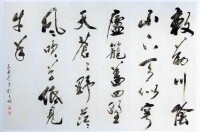 敕勒川陰
山下天似穹
廬籠蓋四野
天蒼々野茫々
風吹草低見
牛羊